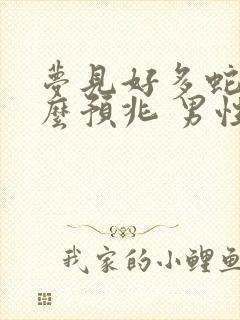 夢見好多蛇
麼預兆 男性
我家的小鯉魚